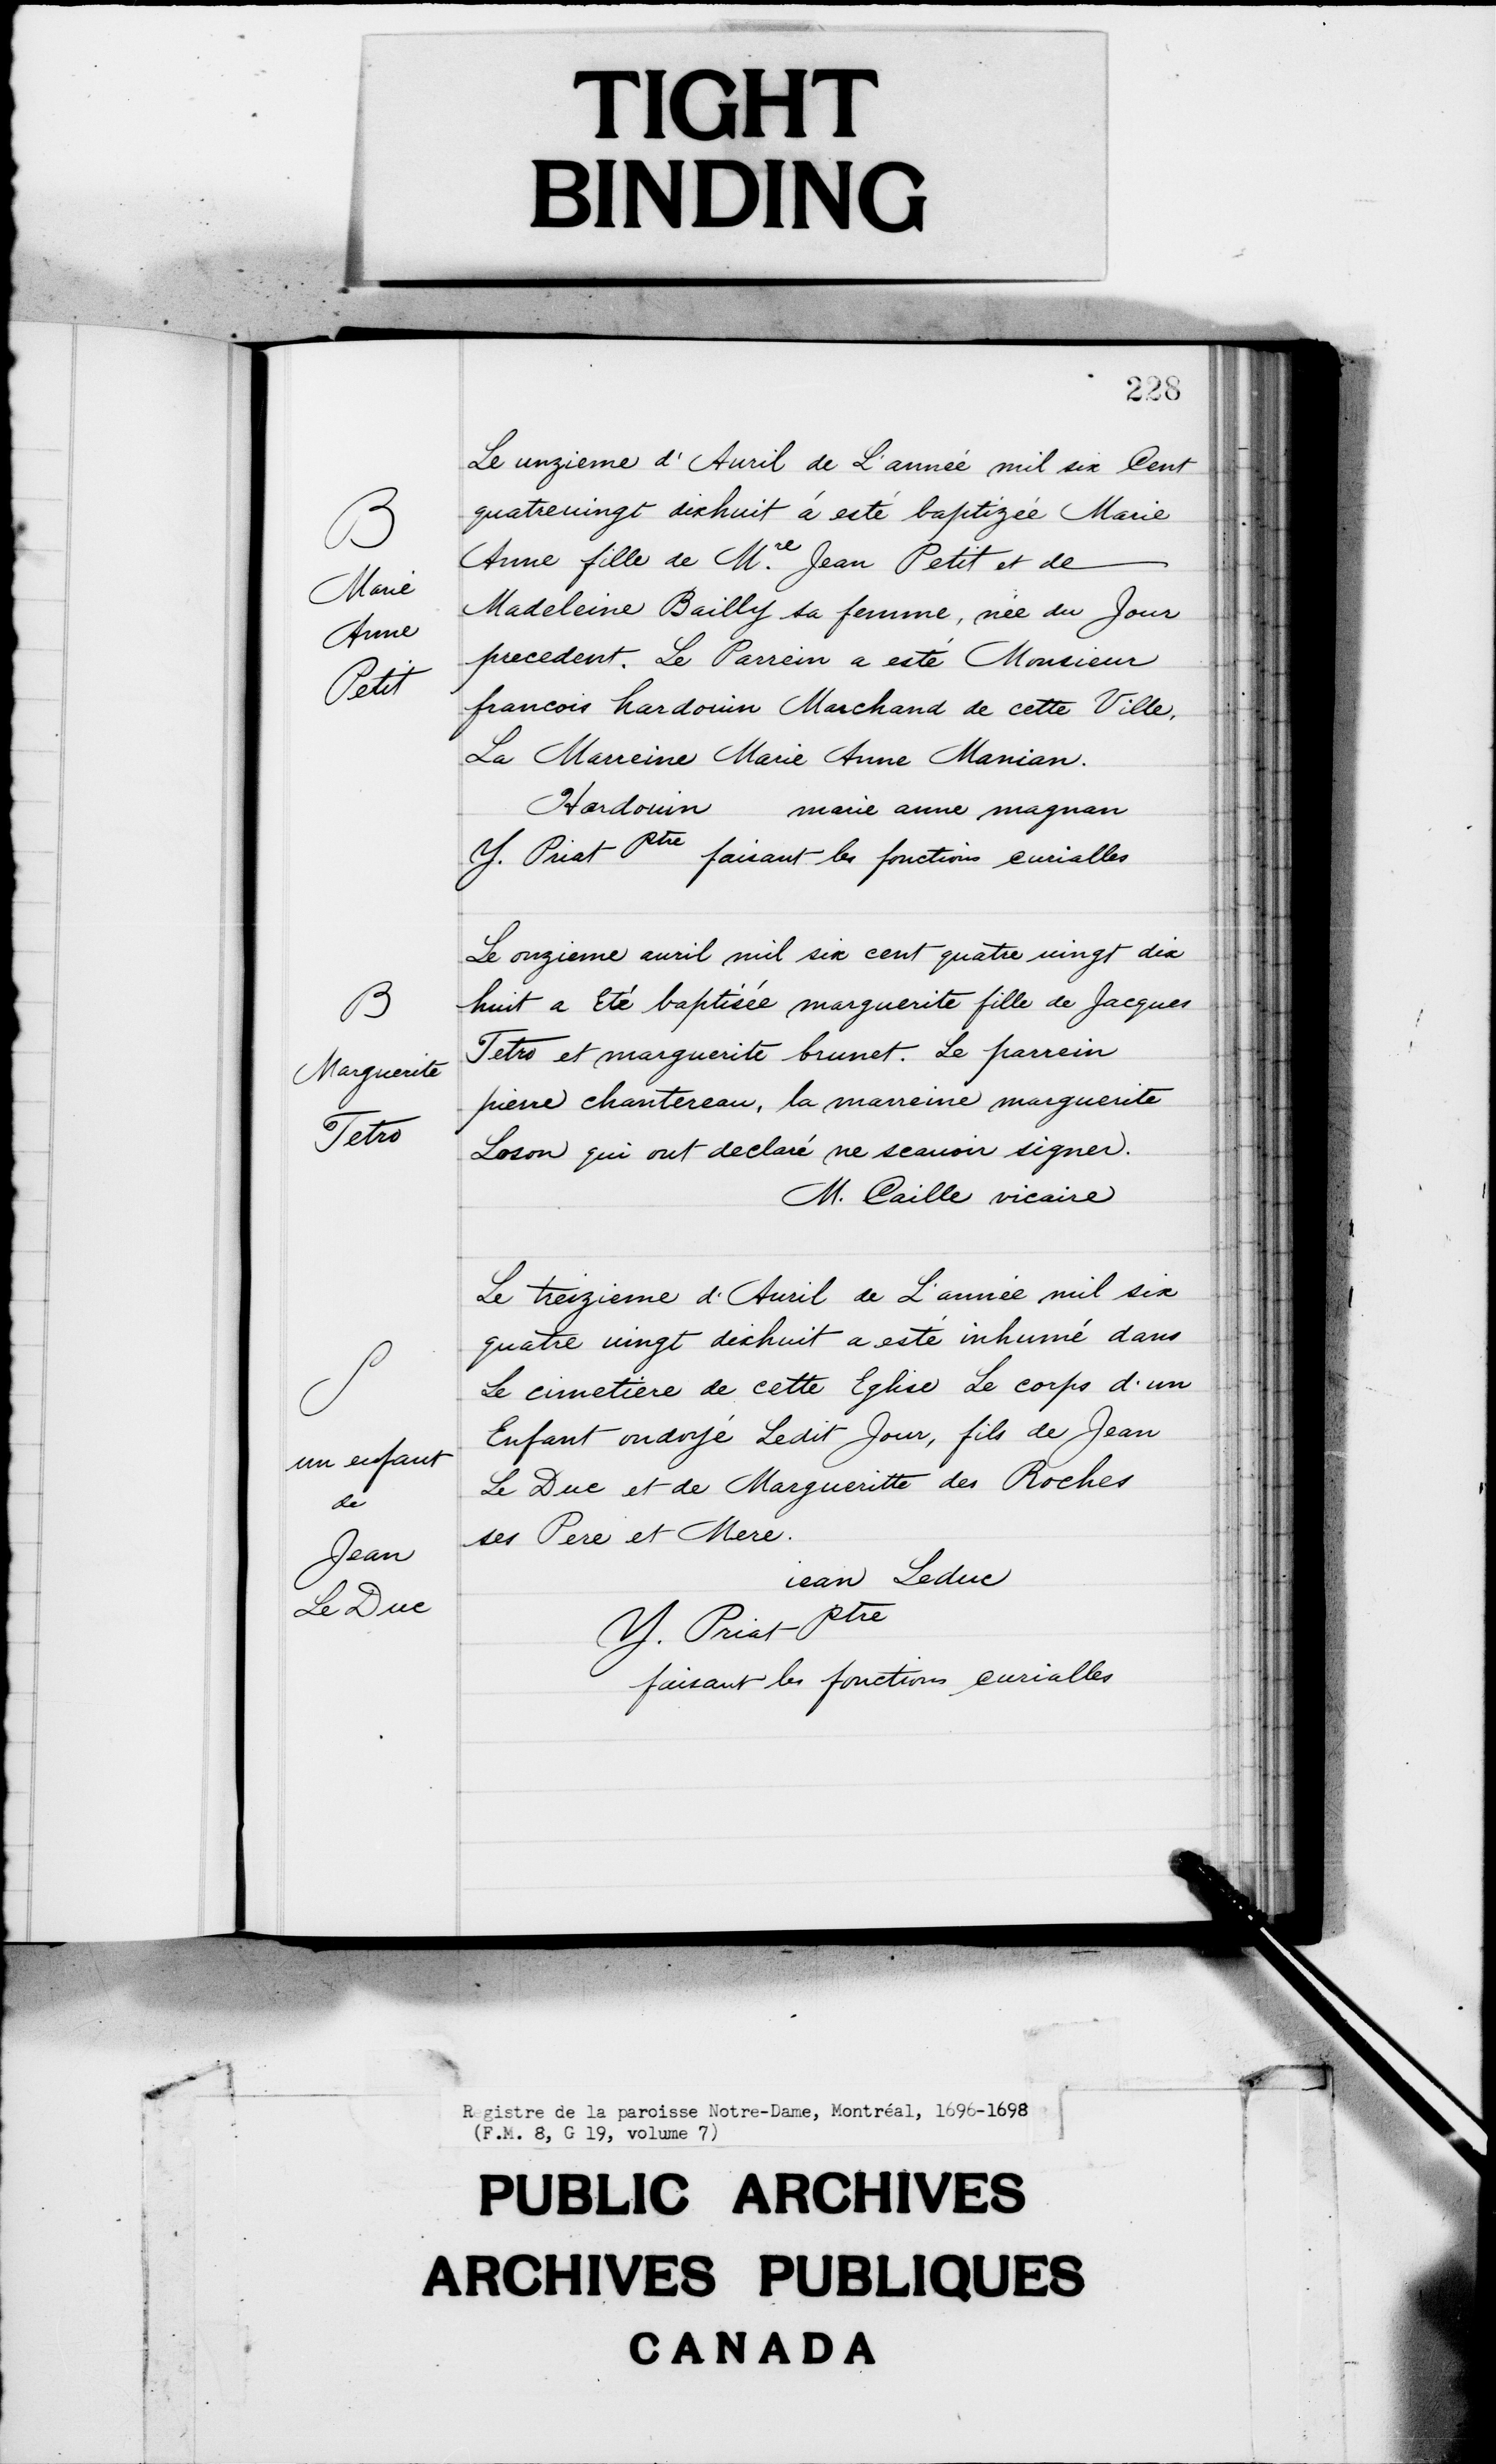 TIGHT
BINDING
228
Le unzieme d' Auril de L'anneé mil six Cent
quatreuingt dixhuit á esté baptizée Marie
Anne fille de M.re Jean Petit et de
Madeleine Bailly sa femme, née du Jour
precedent. Le Parrein a esté Monsieur
francois hardouin Marchand de cette Ville.
La Marreine Marie Anne Manian.
Hardouin marie anne magnan
Y. Priat Ptre faisant les fonctions curialles
B
Marie
Anne
Petit
Le onzieme auril mil six cent quatre uingt dix
huit a Eté baptisée marguerite fille de Jacques
Tetro et marguerite brunet. Le parrein
pierre chantereau, la marreine marguerite
Loson qui ont declaré ne scauoir signer.
M. Caille vicaire
B
Marguerite
Tetro
Le treizieme d'Auril de L'année mil six
quatre uingt dixhuit a esté inhumé dans
Le cimetiere de cette Eglise Le corps d'un
Enfant ondoyé Ledit Jour, fils de Jean
Le Duc et de Margueritte des Roches
ses Pere et Mere.
iean Leduc
Y. Priat Ptre
faisant les fonctions curialles
S
un enfant
de
Jean
Le Duc
Registre de la paroisse Notre-Dame, Montréal, 1696-1698
(F.M. 8, G 19, volume 7)
PUBLIC ARCHIVES
ARCHIVES PUBLIQUES
CANADA